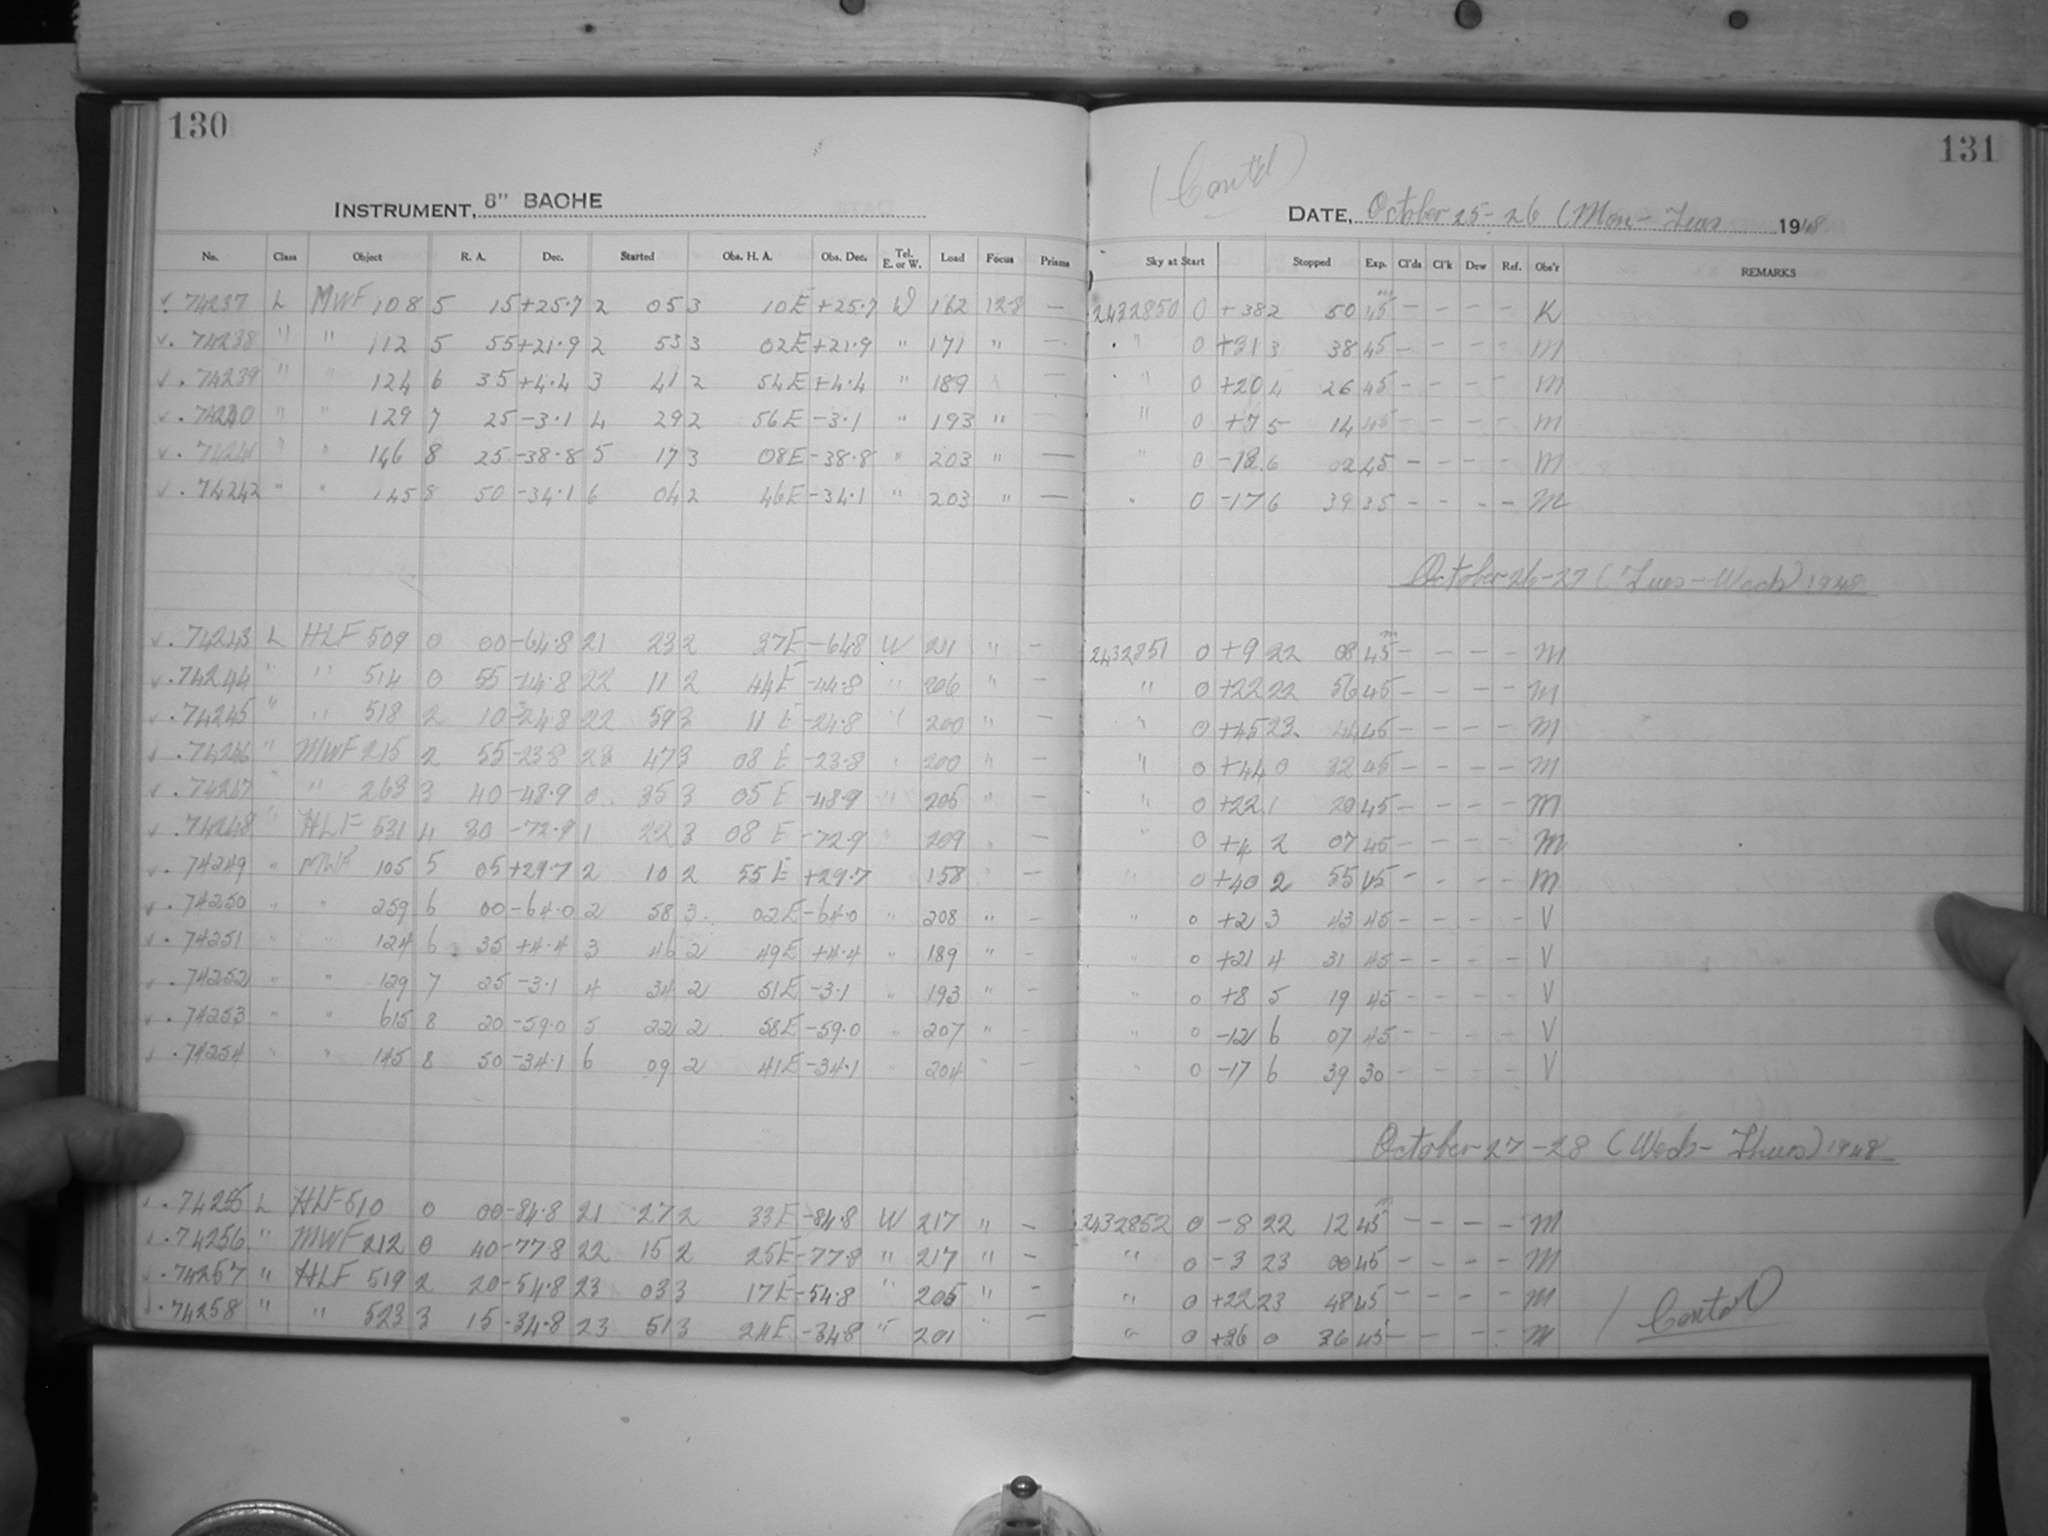 130
INSTRUMENT, 8" BACHE
No. Class Object R. A. Dec. Started Obs. H. A. Obs. Dec. Tel. E. or W. Load Focus Prisms
74237 L MWF 108 5 15 +25.7 2 05 3 10E +25.7 W 162 12.8 —
74238 " " 112 5 55 +21.9 2 53 3 02E +21.9 " 171 " —
74239 " " 124 6 35 +4.4 3 41 2 54E +4.4 " 189 " —
74240 " " 129 7 25 -3.1 4 29 2 56E -3.1 " 193 " —
74241 " " 146 8 25 -38.8 5 17 3 08E -38.8 " 203 " —
74242 " " 145 8 50 -34.1 6 04 2 46E -34.1 " 203 " —
74243 L HLF 509 0 00 -64.8 21 23 2 37E -64.8 W 211 " —
74244 " " 514 0 55 -44.8 22 11 2 44E -44.8 " 206 " —
74245 " " 518 2 10 -24.8 22 59 3 11E -24.8 " 200 " —
74246 " MWF 215 2 55 -23.8 23 47 3 08E -23.8 " 200 " —
74247 " " 263 3 40 -48.9 0 35 3 05E -48.9 " 205 " —
74248 " HLF 531 4 30 -72.9 1 22 3 08E -72.9 " 209 "
74249 " MWF 105 5 05 +29.7 2 10 2 55E +29.7 158 " —
74250 " " 259 6 00 -64.0 2 58 3 02E -64.0 " 208 " —
74251 " " 124 6 35 +4.4 3 46 2 49E +4.4 " 189 " —
74252 " " 129 7 25 -3.1 4 34 2 51E -3.1 " 193 " —
74253 " " 615 8 20 -59.0 5 22 2 58E -59.0 " 207 " —
74254 " " 145 8 50 -34.1 6 09 2 41E -34.1 " 204 " —
74255 L HLF 510 0 00 -84.8 21 27 2 33E -84.8 W 217 " —
74256 " MWF 212 0 40 -77.8 22 15 2 25E -77.8 " 217 " —
74257 " HLF 519 2 20 -54.8 23 03 3 17E -54.8 " 205 " —
74258 " " 523 3 15 -34.8 23 51 3 24E -34.8 " 201 " —
131
(Cont'd)
DATE, October 25-26 (Mon-Tues 1948
Sky at Start Stopped Exp. Cl'ds Cl'k Dew Ref. Obs'r REMARKS
2432850 0 +38 2 50 45m — — — — K
" 0 +31 3 38 45 — — — — M
" 0 +20 4 26 45 — — — — M
" 0 +7 5 14 45 — — — — M
" 0 -18 6 02 45 — — — — M
" 0 -17 6 39 35 — — — — M
October 26-27 (Tues-Weds) 1948
2432851 0 +9 22 08 45m — — — — M
" 0 +22 22 56 45 — — — — M
" 0 +45 23 44 45 — — — — M
" 0 +44 0 32 45 — — — — M
" 0 +22 1 20 45 — — — — M
" 0 +4 2 07 45 — — — — M
" 0 +40 2 55 45 — — — — M
" 0 +2 3 43 45 — — — — V
" 0 +21 4 31 45 — — — — V
" 0 +8 5 19 45 — — — — V
" 0 -12 6 07 45 — — — — V
" 0 -17 6 39 30 — — — — V
October 27-28 (Weds-Thurs) 1948
2432852 0 -8 22 12 45m — — — — M
" 0 -3 23 00 45 — — — — M
" 0 +22 23 48 45 — — — — M
" 0 +26 0 36 45 — — — — M
(Contd)